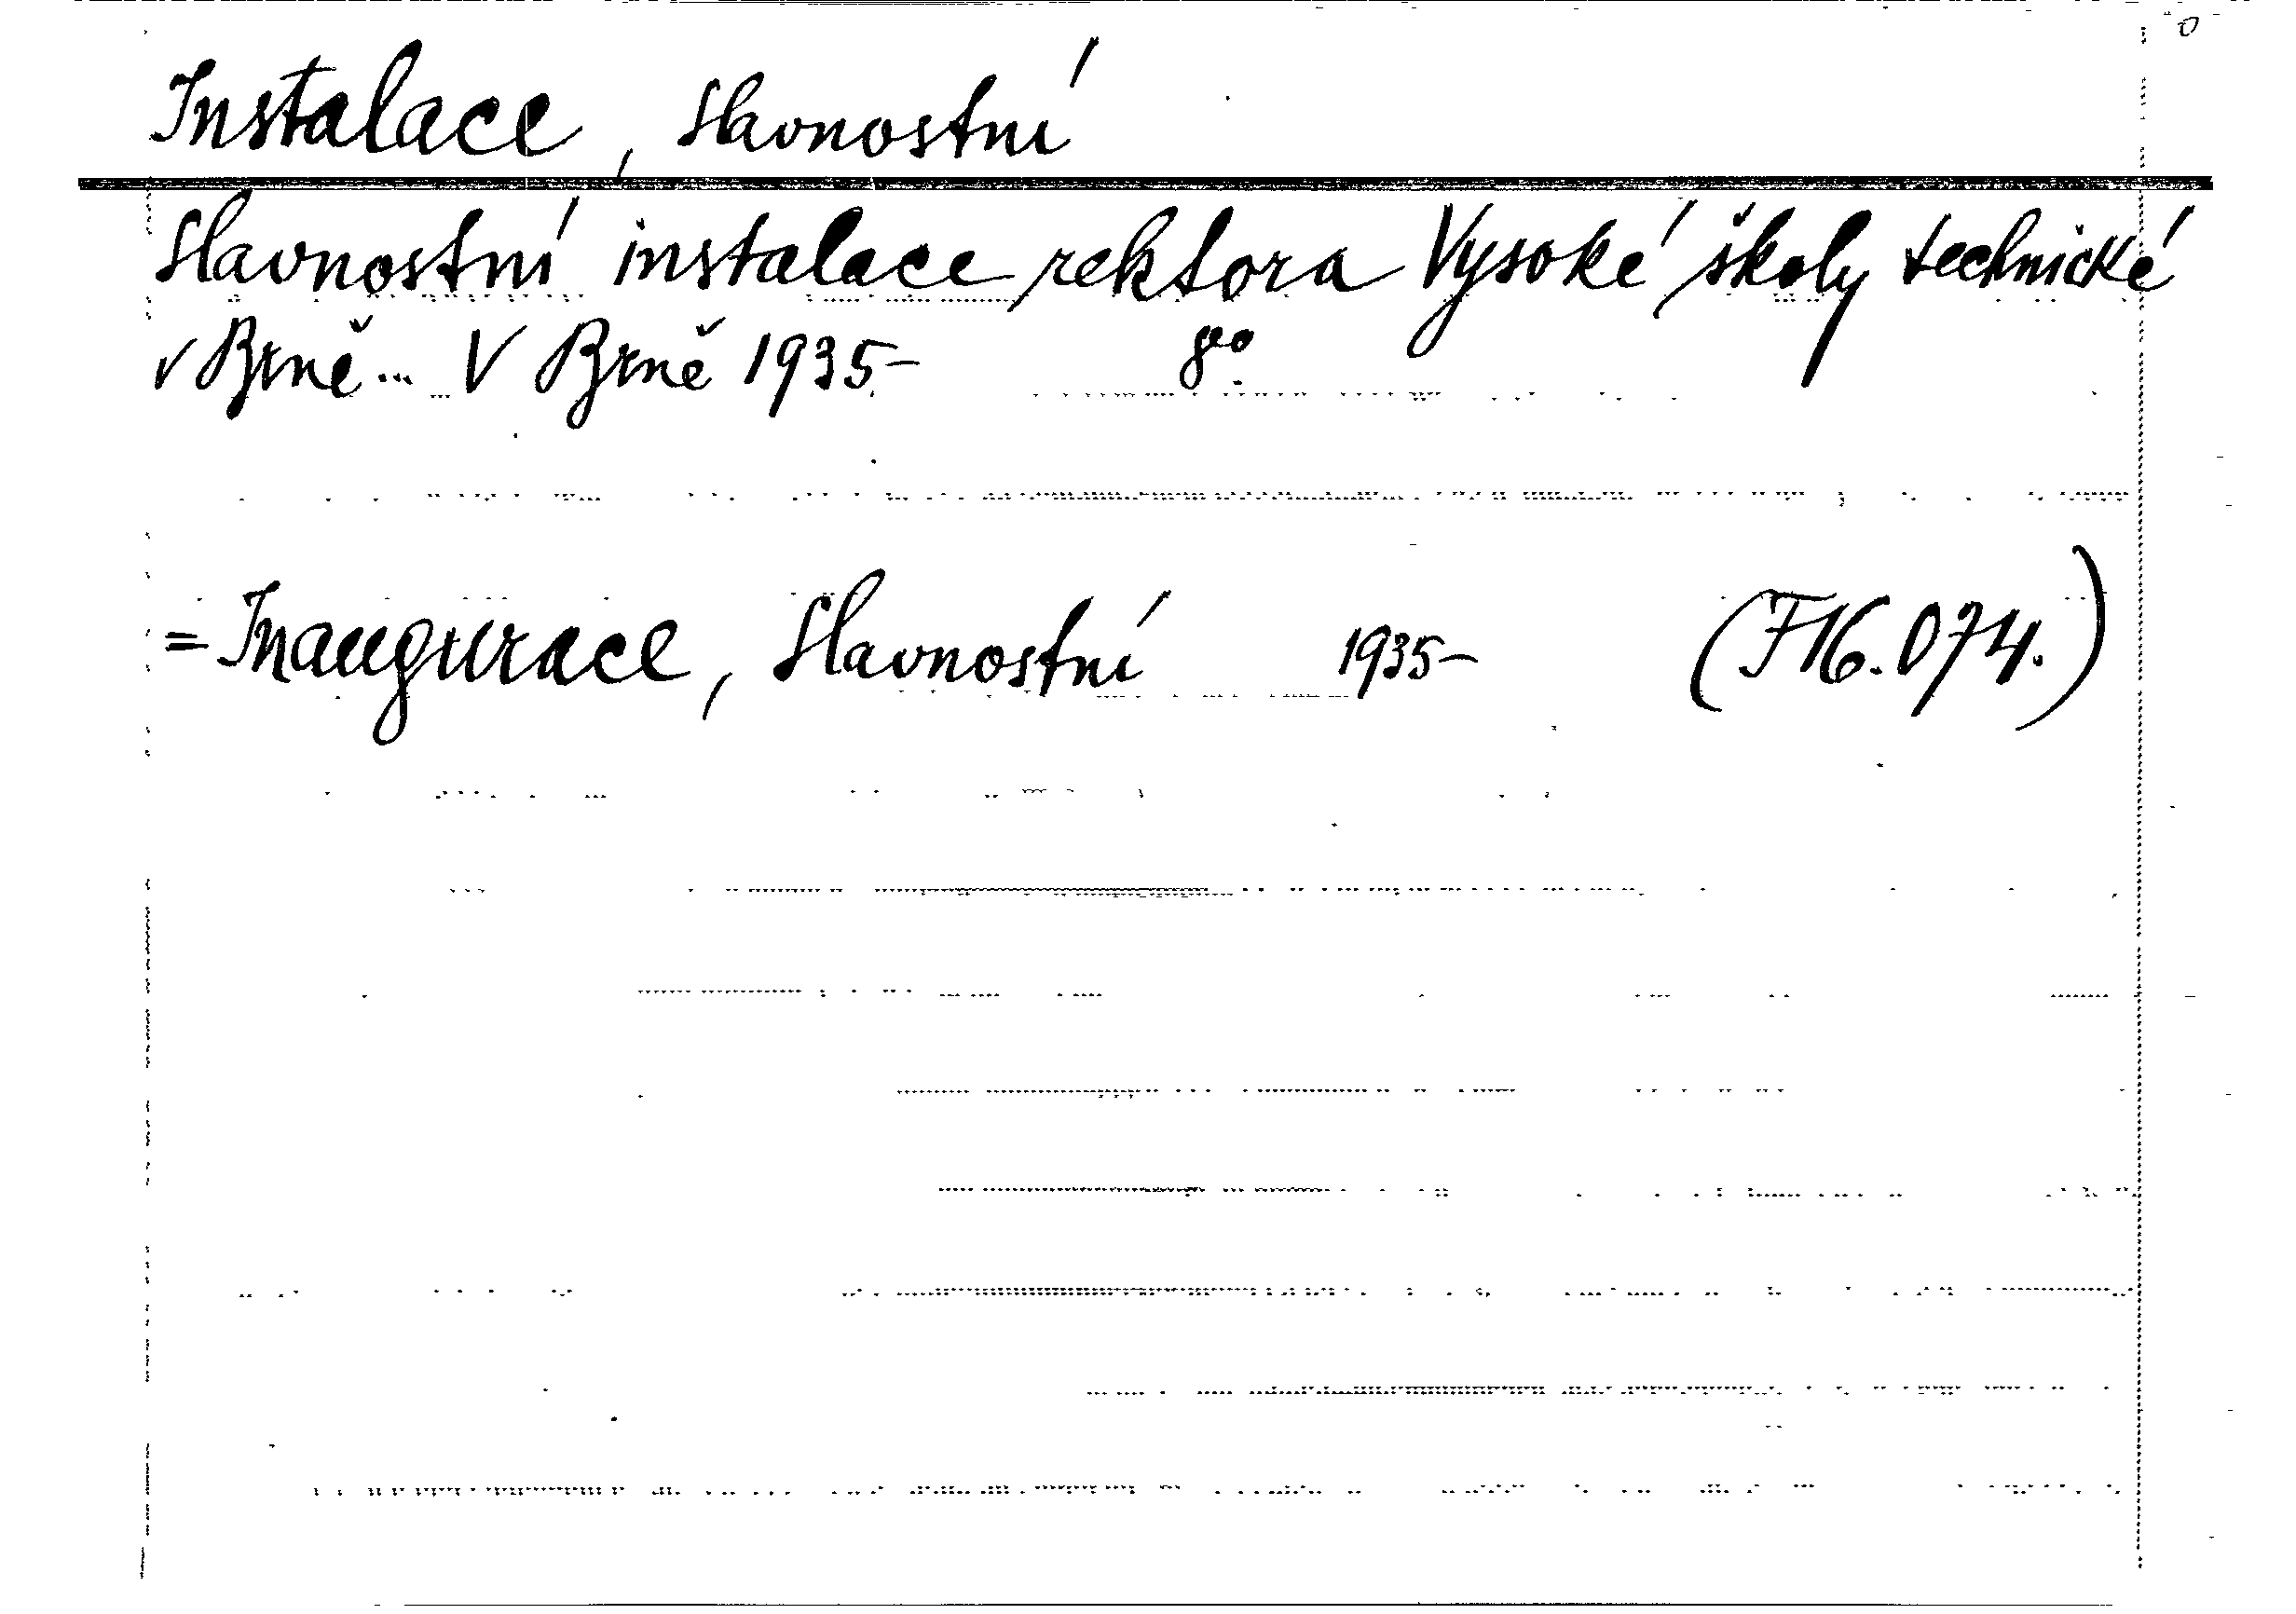 Instalace, Slavnostní
Slavnostní instalace rektora Vysoké školy technické
v Brně... V Brně 1935- 8°
= Inaugurace, Slavnostní 1935- (F16.074.)